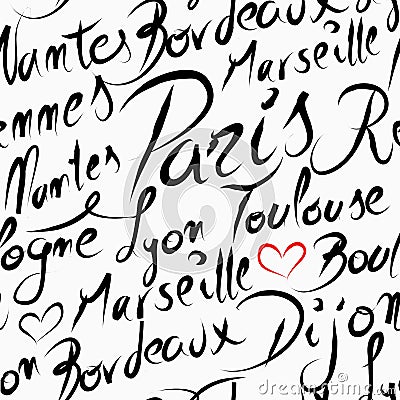 Nantes Bordeaux
ennes Marseille
Nantes Paris Re
logne Lyon Toulouse
Marseille Boul
on Bordeaux Dijon
dreamstime.com